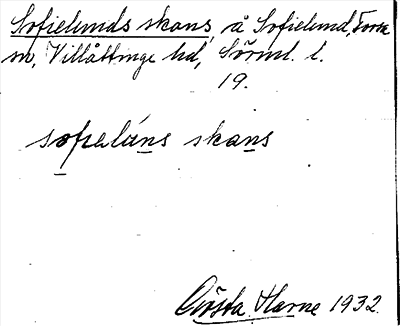 Sofielunds skans, å Sofielund, Forssa
sn, Villåttinge hd, Sörml. l.
19.
sofəlúns skans
Gösta Harne 1932.